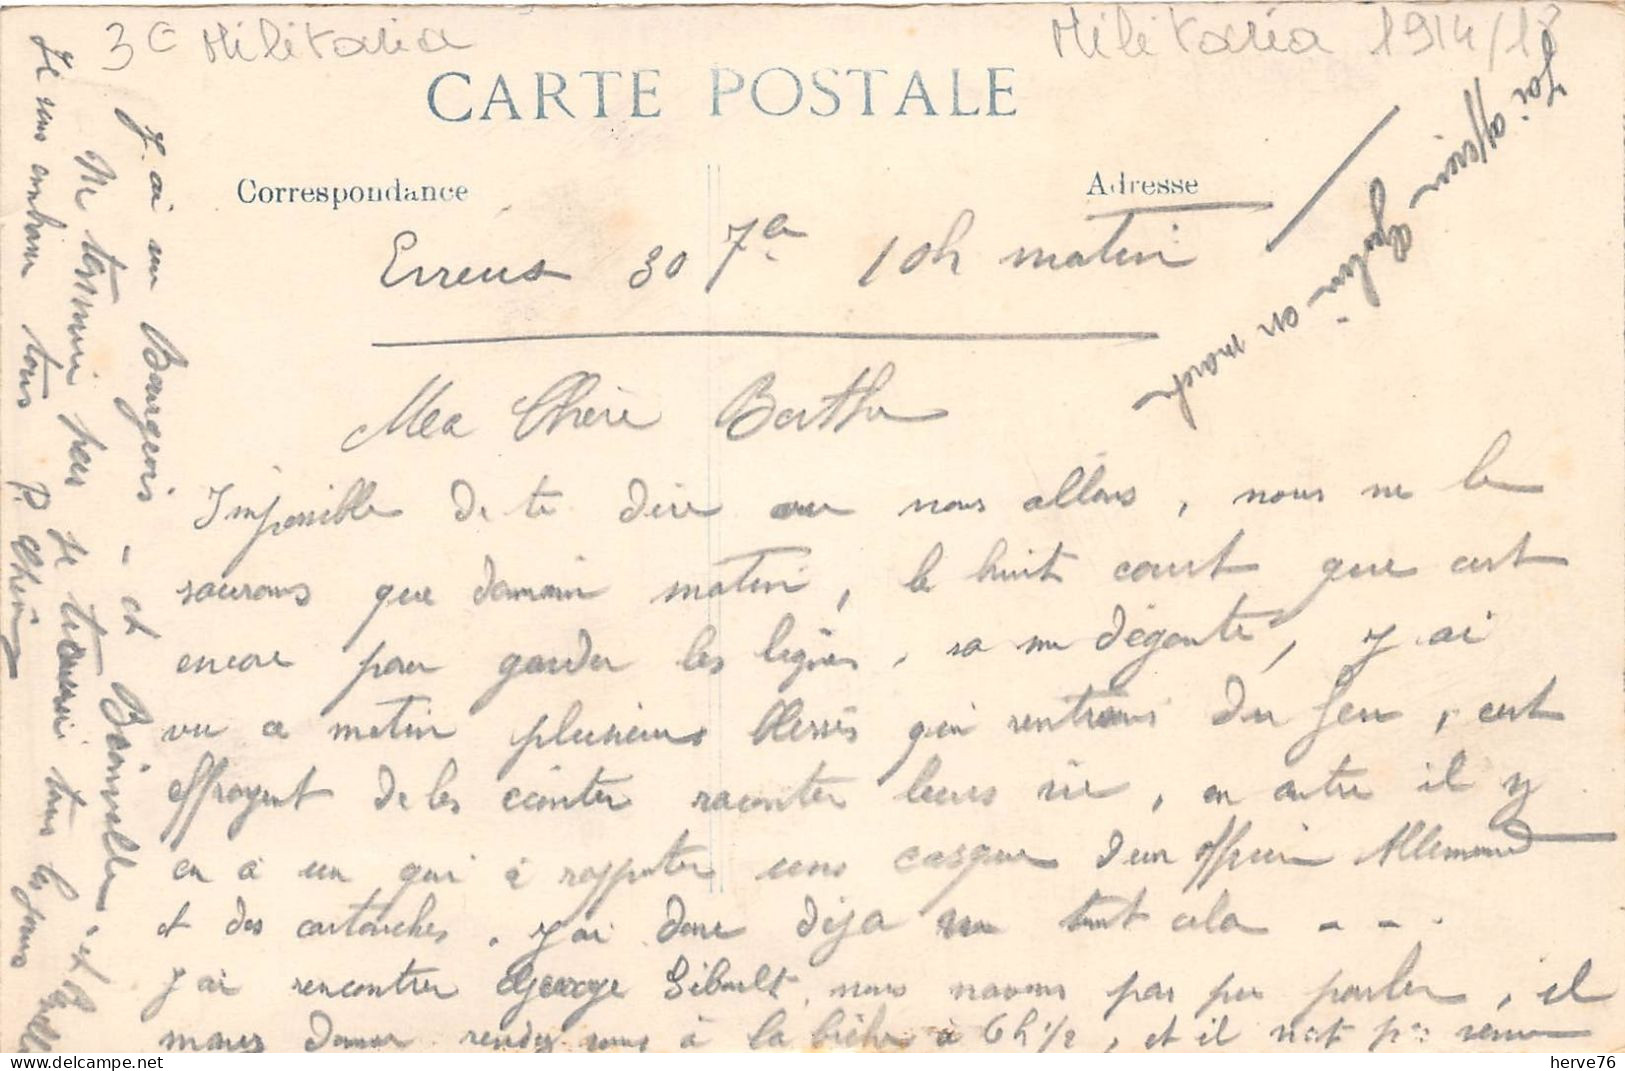 3€ Militaria
Militaria 1914/18
CARTE POSTALE
Correspondance
Adresse
30 7bre 10h matin
Ma Chère Berthe
Impossible de te dire ou nous allons, nous ne le
saurons que demain matin, le bruit court que cest
encore pour garder les lignes, sa me dégoute, j'ai
vu ce matin plusieurs blessés qui rentrons du feu, cest
effroyent de les écouter raconter leurs vie, en outre il y
en a un qui à rapporter une casque d'un officier Allemand
et des cartouches. j'ai donc déja vu tout cela - - .
J'ai rencontrer George Gibault, nous navons pas pu parler, il
mavez donner rendez vous à la biche à 6h 1/2, et il n'est pas venu
J'ai vu Bourgeois - et Boinville et
Me tourmine pas je t'écrirai tous les jours
Je vous embrasse tous P. Chéri
J'ai aperçu en march
herve76